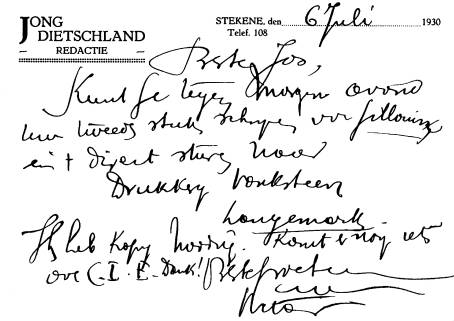 JONG DIETSCHLAND
REDACTIE
STEKENE, den 6 Juli 1930
Telef. 108
Beste Jos,
Kunt ge tegen morgen avond
een tweede stuk schrijven over
en 't direct sturen naar
Drukkerij Vonksteen
Langemark.
Ik heb kopij noodig. Komt er nog iets
over C.I.E. Dank! Beste groeten
Victor